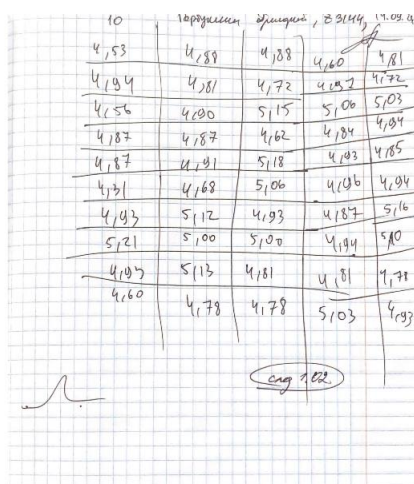 10 Z3144, 14.09.2
4,53 4,88 4,88 4,60 4,81
4,94 4,81 4,72 4,97 4,72
4,56 4,90 5,15 5,06 5,03
4,87 4,87 4,62 4,84 4,94
4,87 4,91 5,18 4,93 4,85
4,31 4,68 5,06 4,96 4,94
4,93 5,12 4,93 4,87 5,16
5,21 5,00 5,00 4,94 5,10
4,93 5,13 4,81 4,81 4,78
4,60 4,78 4,78 5,03 4,93
1.02